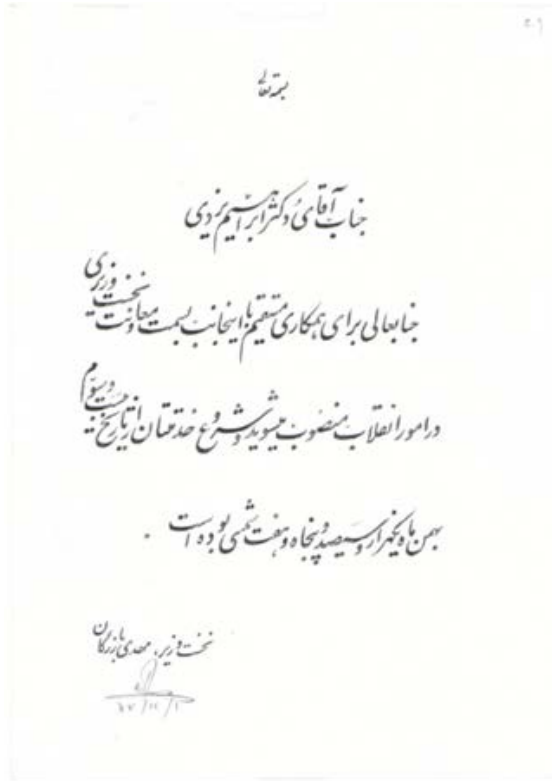 بسمه‌تعالی
جناب آقای دکتر ابراهیم یزدی
جنابعالی برای همکاری مستقیم با اینجانب بسمت معاونت نخست وزیری
در امور انقلاب منصوب میشوید و شروع خدمتتان از تاریخ بیست و سوم
بهمن ماه یکهزار و سیصد و پنجاه و هفت شمسی بوده است .
نخست وزیر، مهدی بازرگان